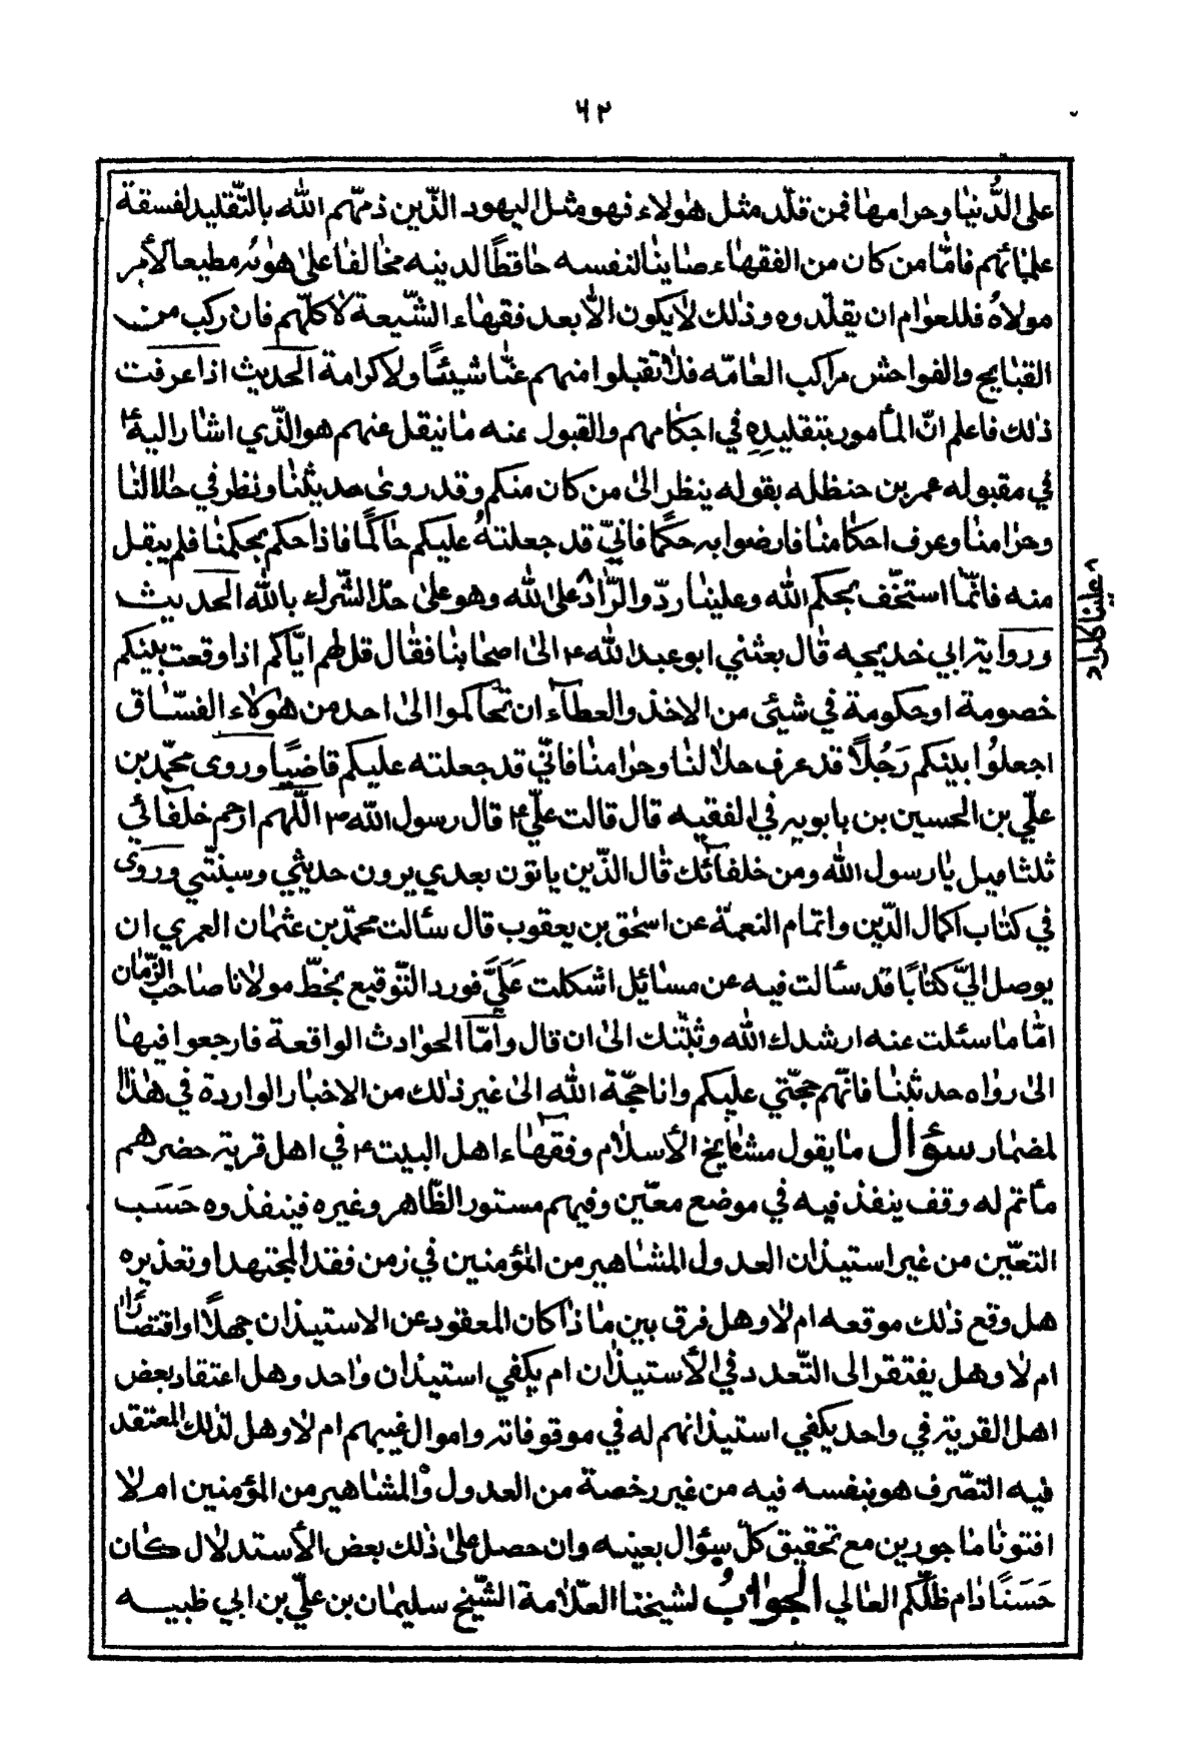 ٦٢
على الدُّنيا وحرامها فمن قلّد مثل هؤلاء فهو مثل اليهود الذّين ذمّهم الله بالتّقليد لفسقة
علمائهم فامّا من كان من الفقهاء صاينا لنفسه حافظًا لدينه مخالفا على هواه مطيعا لأمر
مولاهُ فللعوام ان يقلّدوه وذلك لا يكون الاّ بعد فقهاء الشّيعة لا كلّهم فان ركب من
القبايح والفواحش مراكب العامّه فلا تقبلوا منهم عنّا شيئًا ولا كرامة الحديث اذا عرفت
ذلك فاعلم انّ المأمور بتقليدِهِ في احكامهم والقبول عنه ما نيقل عنهم هو الذّي اشار اليه ع
في مقبوله عمر بن حنظله بقوله ينظر الى من كان منكم وقد روى حديثنا ونظر في حلالنا
وحرامنا وعرف احكامنا فارضوا به حكمًا فانّي قد جعلتهُ عليكم حاكمًا فاذا حكم بحكمنا فلم يقبل
منه فانّما استخّف بحكم الله وعلينا ردّ والرّادّ على الله وهو على حدّ الشّرك بالله الحديث
علينا كالراد
ورواية ابي خديجه قال بعثني ابو عبد الله ع الى اصحابنا فقال قل لهم ايّاكم اذا وقعت بينكم
خصومة او حكومة في شيئ من الاخذ والعطآء ان تحاكموا الى احد من هؤلاء الفسّاق
اجعلوُا بينكم رَجُلاً قد عرف حلالنا وحرامنا فانّي قد جعلته عليكم قاضيًا وروى محمّد بن
علّي بن الحسين بن بابويه في الفقيه قال قالت علّي ع قال رسول الله ص اللّهم ارحم خلفائي
ثلثا ميل يا رسول الله ومن خلفائك قال الذّين ياتون بعدي يرون حديثي وسنتّي وروى
في كتاب اكمال الدّين واتمام النعمة عن اسحق بن يعقوب قال سئالت محمّد بن عثمان العمري ان
يوصل اليّ كتابًا قد سئالت فيه عن مسائل اشكلت عَلَيَّ فورد التّوقيع بخطّ مولانا صاحب الزّمان
امّا ما سئلت عنه ارشدك الله وثبّتك الى ان قال وأمّا الحوادث الواقعة فارجعوا فيها
الى رواه حديثنا فانّهم حجّتي عليكم وانا حجّة الله الى غير ذلك من الاخبار الواردة في هذا
لمضمار سؤال ما يقول مشايخ الأسلام وفقهاء اهل البيت ع في اهل قرية حضرهم
مأتم له وقف ينفذ فيه في موضع معيّن وفيهم مستور الظّاهر وغيره فينفذوه حَسَب
التعّين من غير استيذان العدول المشاهير من المؤمنين في زمن فقد المجتهد او تعذيره
هل وقع ذلك موقعه ام لا وهل فرق بين ما ذا كان المعقود عن الاستيذان جهلاً او اقتصارًا
ام لا وهل يفتقر الى التّعدد في الأستيذان ام يكفي استيذان واحد وهل اعتقاد بعض
اهل القرية في واحد يكفي استيذانهم له في موقوفاته واموال غيبهم ام لا وهل لذلك المعتقد
فيه التصّرف هو بنفسه فيه من غير رخصة من العدول والمشاهير من المؤمنين ام لا
افتونا ماجورين مع تحقيق كلّ سؤال بعينه وان حصل على ذلك بعض الأستدلال كان
حَسَنًا دام ظلّكم العالي الجوابُ لشيخنا العلاّمة الشّيخ سليمان بن علّي بن ابي ظبيه